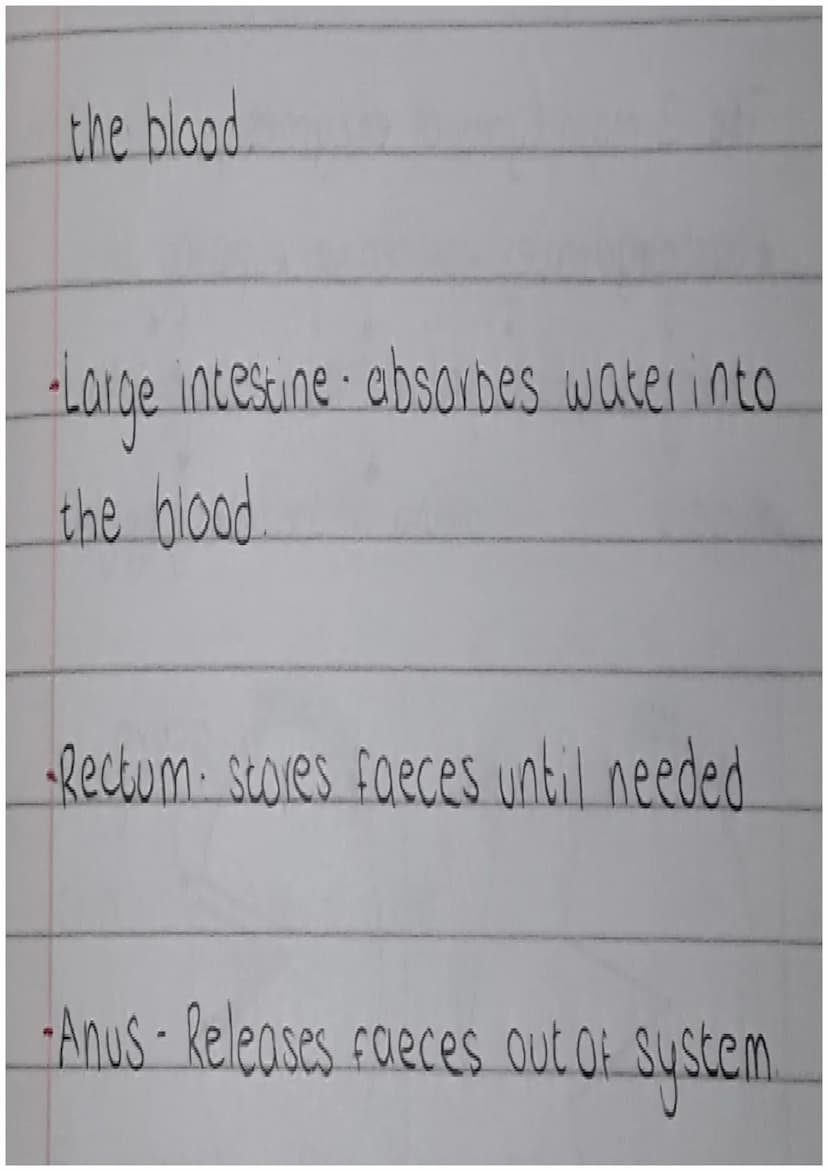 the blood.
·Large intestine · absorbes water into
the blood.
·Rectum · stores faeces until needed
·Anus - Releases faeces out of system.